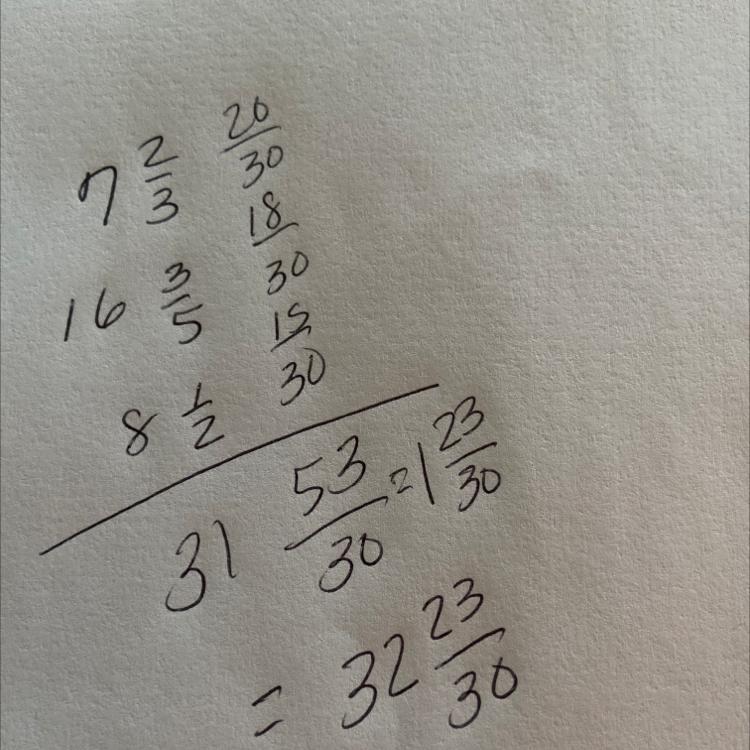 7 2/3 20/30
16 3/5 18/30
8 1/2 15/30
31 53/30 = 1 23/30
= 32 23/30